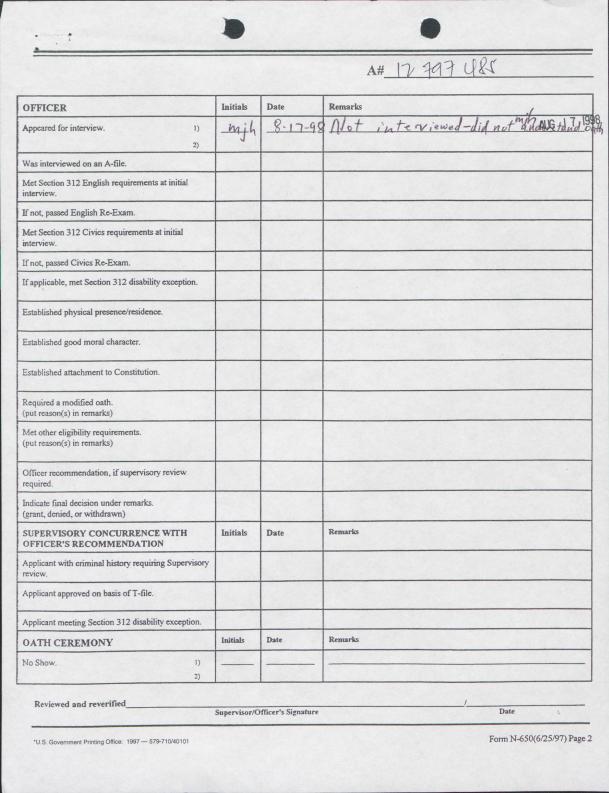 A# 12 797 485
OFFICER Initials Date Remarks
Appeared for interview. 1) mjh 8-17-98 Not interviewed-did not understand oath
mjh AUG 17 1998
2)
Was interviewed on an A-file.
Met Section 312 English requirements at initial
interview.
If not, passed English Re-Exam.
Met Section 312 Civics requirements at initial
interview.
If not, passed Civics Re-Exam.
If applicable, met Section 312 disability exception.
Established physical presence/residence.
Established good moral character.
Established attachment to Constitution.
Required a modified oath.
(put reason(s) in remarks)
Met other eligibility requirements.
(put reason(s) in remarks)
Officer recommendation, if supervisory review
required.
Indicate final decision under remarks.
(grant, denied, or withdrawn)
SUPERVISORY CONCURRENCE WITH Initials Date Remarks
OFFICER'S RECOMMENDATION
Applicant with criminal history requiring Supervisory
review.
Applicant approved on basis of T-file.
Applicant meeting Section 312 disability exception.
OATH CEREMONY Initials Date Remarks
No Show. 1)
2)
Reviewed and reverified /
Supervisor/Officer's Signature Date
*U.S. Government Printing Office: 1997 — 579-710/40101 Form N-650(6/25/97) Page 2